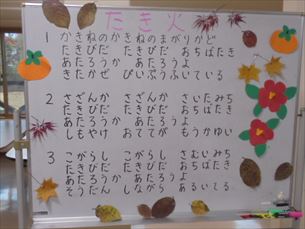 たき火
1 かきねのかきねのまがりかど
たきびだ たきびだ おちばたき
あたろうか あたろうよ
きたかぜ ぴいぷうふいている
2 さざんか さざんか さいたみち
たきびだ たきびだ おちばたき
あたろうか あたろうよ
しもやけ おててが もうかゆい
3 こがらし こがらし さむいみち
たきびだ たきびだ おちばたき
あたろうか あたろうよ
そうだん しながら あるいてる